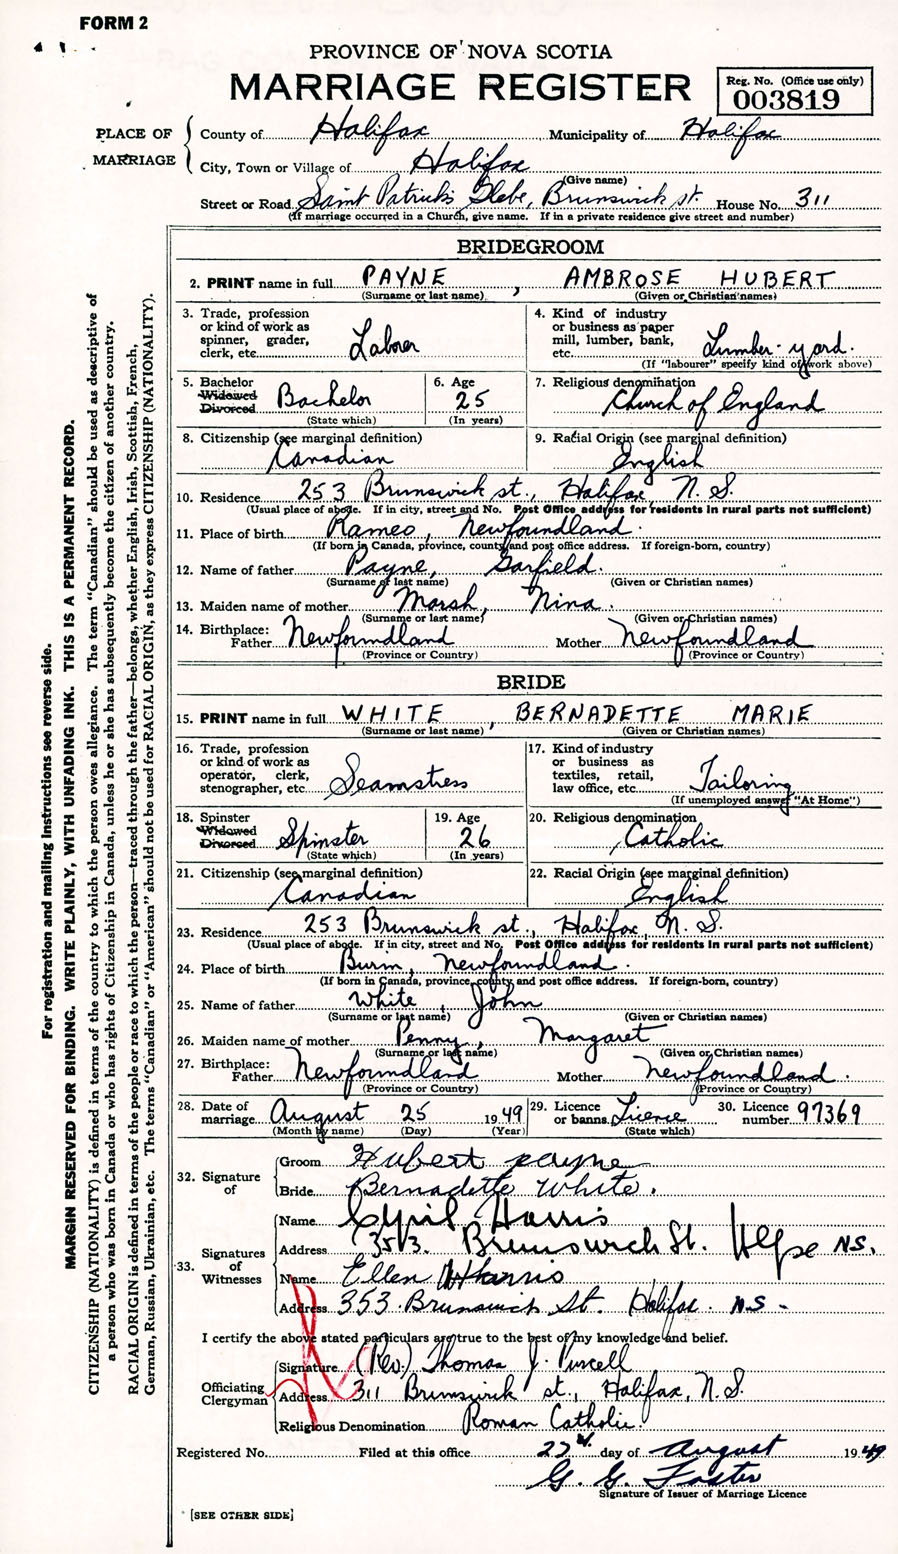 FORM 2
PROVINCE OF NOVA SCOTIA
MARRIAGE REGISTER
Reg. No. (Office use only)
003819
PLACE OF MARRIAGE
County of Halifax Municipality of Halifax
City, Town or Village of Halifax
(Give name)
Street or Road Saint Patrick's Glebe, Brunswick st. House No. 311
(If marriage occurred in a Church, give name. If in a private residence give street and number)
BRIDEGROOM
2. PRINT name in full PAYNE, AMBROSE HUBERT
(Surname or last name) (Given or Christian names)
3. Trade, profession or kind of work as spinner, grader, clerk, etc. Laborer
4. Kind of industry or business as paper mill, lumber, bank, etc. Lumber-yard.
(If "labourer" specify kind of work above)
5. Bachelor Widowed Divorced Bachelor
(State which)
6. Age 25
(In years)
7. Religious denomination
Church of England
8. Citizenship (see marginal definition)
Canadian
9. Racial Origin (see marginal definition)
English
10. Residence 253 Brunswick st., Halifax, N.S.
(Usual place of abode. If in city, street and No. Post Office address for residents in rural parts not sufficient)
11. Place of birth Rameo, Newfoundland.
(If born in Canada, province, county and post office address. If foreign-born, country)
12. Name of father Payne, Garfield.
(Surname of last name) (Given or Christian names)
13. Maiden name of mother Marsh, Nina.
(Surname or last name) (Given or Christian names)
14. Birthplace: Father Newfoundland Mother Newfoundland
(Province or Country) (Province or Country)
BRIDE
15. PRINT name in full WHITE, BERNADETTE MARIE
(Surname or last name) (Given or Christian names)
16. Trade, profession or kind of work as operator, clerk, stenographer, etc. Seamstress
17. Kind of industry or business as textiles, retail, law office, etc. Tailoring
(If unemployed answer "At Home")
18. Spinster Widowed Divorced Spinster
(State which)
19. Age 26
(In years)
20. Religious denomination
Catholic
21. Citizenship (see marginal definition)
Canadian
22. Racial Origin (see marginal definition)
English
23. Residence 253 Brunswick st., Halifax, N.S.
(Usual place of abode. If in city, street and No. Post Office address for residents in rural parts not sufficient)
24. Place of birth Burin, Newfoundland.
(If born in Canada, province, county and post office address. If foreign-born, country)
25. Name of father White, John
(Surname or last name) (Given or Christian names)
26. Maiden name of mother Penny, Margaret
(Surname or last name) (Given or Christian names)
27. Birthplace: Father Newfoundland Mother Newfoundland.
(Province or Country) (Province or Country)
28. Date of marriage August 25 1949
(Month by name) (Day) (Year)
29. Licence or banns Licence
(State which)
30. Licence number 97369
32. Signature of
Groom Hubert Payne
Bride Bernadette White.
33. Signatures of Witnesses
Name Cyril Harris
Address 353. Brunswick St. Hlfx NS.
Name Ellen Harris
Address 353 Brunswick St. Halifax. N.S.
I certify the above stated particulars are true to the best of my knowledge and belief.
Officiating Clergyman
Signature (Rev.) Thomas J. Purcell
Address 311 Brunswick st., Halifax, N.S.
Religious Denomination Roman Catholic.
Registered No. Filed at this office 27 day of August 1949
G. G. Foster
Signature of Issuer of Marriage Licence
[SEE OTHER SIDE]
For registration and mailing instructions see reverse side.
MARGIN RESERVED FOR BINDING. WRITE PLAINLY, WITH UNFADING INK. THIS IS A PERMANENT RECORD.
CITIZENSHIP (NATIONALITY) is defined in terms of the country to which the person owes allegiance. The term "Canadian" should be used as descriptive of
a person who was born in Canada or who has rights of Citizenship in Canada, unless he or she has subsequently become the citizen of another country.
RACIAL ORIGIN is defined in terms of the people or race to which the person—traced through the father—belongs, whether English, Irish, Scottish, French,
German, Russian, Ukrainian, etc. The terms "Canadian" or "American" should not be used for RACIAL ORIGIN, as they express CITIZENSHIP (NATIONALITY).